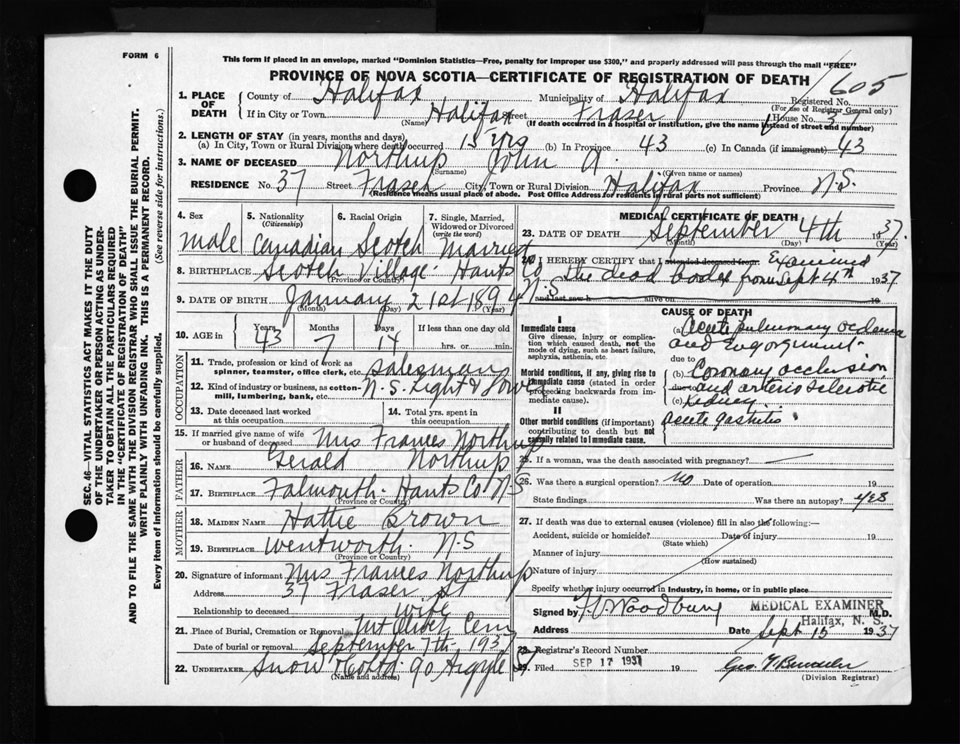 FORM 6
This form if placed in an envelope, marked "Dominion Statistics—Free, penalty for improper use $300," and properly addressed will pass through the mail "FREE"
PROVINCE OF NOVA SCOTIA—CERTIFICATE OF REGISTRATION OF DEATH
1605
1. PLACE OF DEATH
County of Halifax Municipality of Halifax Registered No.
(For use of Registrar General only)
If in City or Town Halifax Street Fraser House No. 37
(Name) (If death occurred in a hospital or institution, give the name instead of street and number)
2. LENGTH OF STAY (in years, months and days)
(a) In City, Town or Rural Division where death occurred 15 yrs (b) In Province 43 (c) In Canada (if immigrant) 43
3. NAME OF DECEASED Northup John A.
(Surname) (Given name or names)
RESIDENCE No. 37 Street Fraser City, Town or Rural Division Halifax Province N.S.
(Residence means usual place of abode. Post Office Address for residents in rural parts not sufficient)
4. Sex
male
5. Nationality
(Citizenship)
Canadian
6. Racial Origin
Scotch
7. Single, Married, Widowed or Divorced
(write the word)
Married
8. BIRTHPLACE Scotch Village Hants Co
N.S
(Province or Country)
9. DATE OF BIRTH January 21st 1894
(Month) (Day)
10. AGE in
Years Months Days If less than one day old
43 7 14 hrs. or min.
OCCUPATION
11. Trade, profession or kind of work as spinner, teamster, office clerk, etc. salesman
12. Kind of industry or business, as cotton-mill, lumbering, bank, etc. N.S. Light & Power
13. Date deceased last worked at this occupation
14. Total yrs. spent in this occupation
15. If married give name of wife or husband of deceased Mrs Frances Northup
FATHER
16. NAME Gerald Northup
17. BIRTHPLACE Falmouth Hants Co N.S
(Province or Country)
MOTHER
18. MAIDEN NAME Hattie Brown
19. BIRTHPLACE Wentworth N.S
(Province or Country)
20. Signature of informant Mrs Frances Northup
Address 37 Fraser St
Relationship to deceased wife
21. Place of Burial, Cremation or Removal Mt Olivet Cem
Date of burial or removal September 7th 1937
22. UNDERTAKER Snow & Co Ltd. 90 Argyle St
(Name and address)
MEDICAL CERTIFICATE OF DEATH
23. DATE OF DEATH September 4th 1937.
(Month) (Day) (Year)
24. I HEREBY CERTIFY that I attended deceased from Examined
the dead body from Sept 4th 1937
and last saw h alive on 19
CAUSE OF DEATH
I
Immediate cause
Give disease, injury or complication which caused death, not the mode of dying, such as heart failure, asphyxia, asthenia, etc.
(a) Acute pulmonary oedema
and engorgement
due to
Morbid conditions, if any, giving rise to immediate cause (stated in order proceeding backwards from immediate cause).
(b) Coronary occlusion
due to and arterio sclerotic
(c) kidney
II
Other morbid conditions (if important) contributing to death but not causally related to immediate cause.
acute gastritis
25. If a woman, was the death associated with pregnancy? —
26. Was there a surgical operation? no Date of operation 19
State findings Was there an autopsy? yes
27. If death was due to external causes (violence) fill in also the following:—
Accident, suicide or homicide? Date of injury 19
(State which)
Manner of injury
(How sustained)
Nature of injury
Specify whether injury occurred in industry, in home, or in public place
Signed by F V Woodbury M.D.
MEDICAL EXAMINER
Halifax, N. S.
Address Date Sept 15 1937
28. Registrar's Record Number
29. Filed SEP 17 1937 19
(Division Registrar)
SEC. 46—VITAL STATISTICS ACT MAKES IT THE DUTY
OF THE UNDERTAKER OR PERSON ACTING AS UNDER-
TAKER TO OBTAIN ALL THE PARTICULARS REQUIRED
IN THE "CERTIFICATE OF REGISTRATION OF DEATH"
AND TO FILE THE SAME WITH THE DIVISION REGISTRAR WHO SHALL ISSUE THE BURIAL PERMIT.
WRITE PLAINLY WITH UNFADING INK. THIS IS A PERMANENT RECORD.
Every item of information should be carefully supplied. (See reverse side for instructions.)